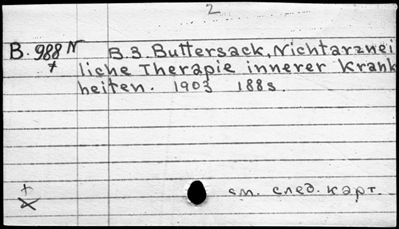 2
B. 988 N B. 3. Buttersack, Nichtarznei
+ liche Therapie innerer Krank
heiten. 1903 188s.
+
см. след. карт.